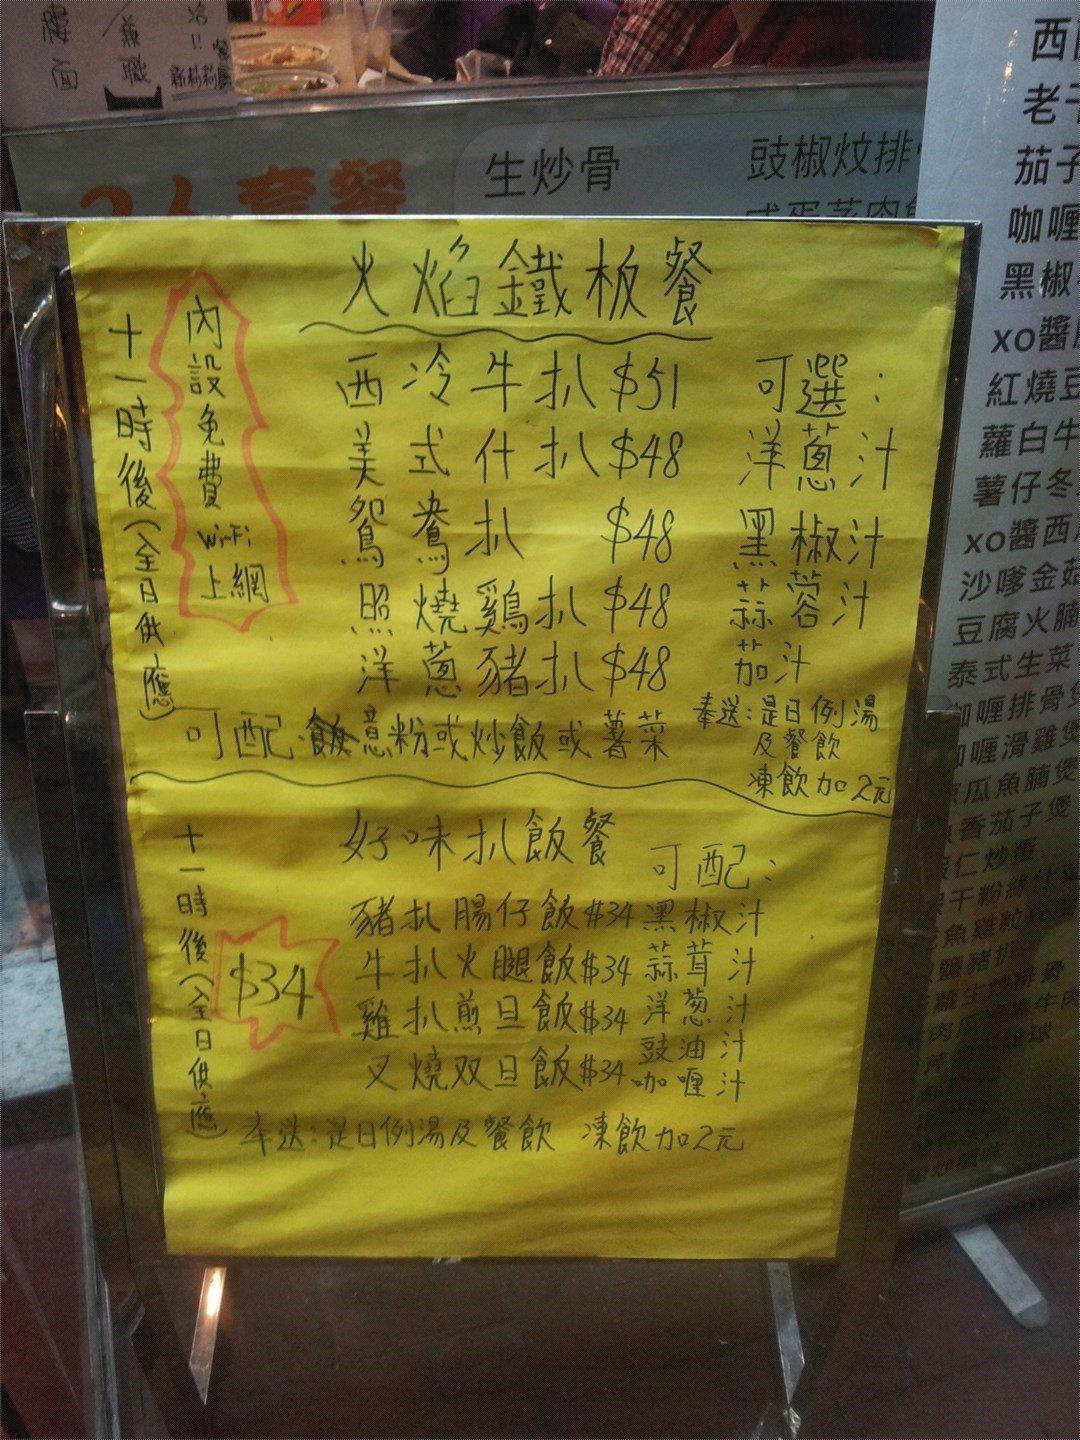 兼職
生炒骨
豉椒炆排
2人套餐
火焰鐵板餐
十一時後(全日供應)
內設免費
Wi-Fi
上網
西冷牛扒$51
美式什扒$48
鴛鴦扒 $48
照燒鷄扒$48
洋蔥豬扒$48
可選:
洋蔥汁
黑椒汁
蒜蓉汁
茄汁
可配:飯意粉或炒飯或薯菜
奉送:是日例湯
及餐飲
凍飲加2元
好味扒飯餐
十一時後(全日供應)
$34
豬扒腸仔飯$34
牛扒火腿飯$34
雞扒煎旦飯$34
叉燒双旦飯$34
可配:
黑椒汁
蒜茸汁
洋葱汁
豉油汁
咖喱汁
奉送:是日例湯及餐飲 凍飲加2元
西
老干
茄子
咖喱
黑椒
xo醬
紅燒豆
蘿白牛
薯仔冬
xo醬西
沙嗲金菇
豆腐火腩
泰式生菜
咖喱排骨煲
咖喱滑雞煲
涼瓜魚腩煲
魚香茄子煲
蝦仁炒蛋
粉絲什菜
魚雞粒豆腐
豬扒
生炒排骨